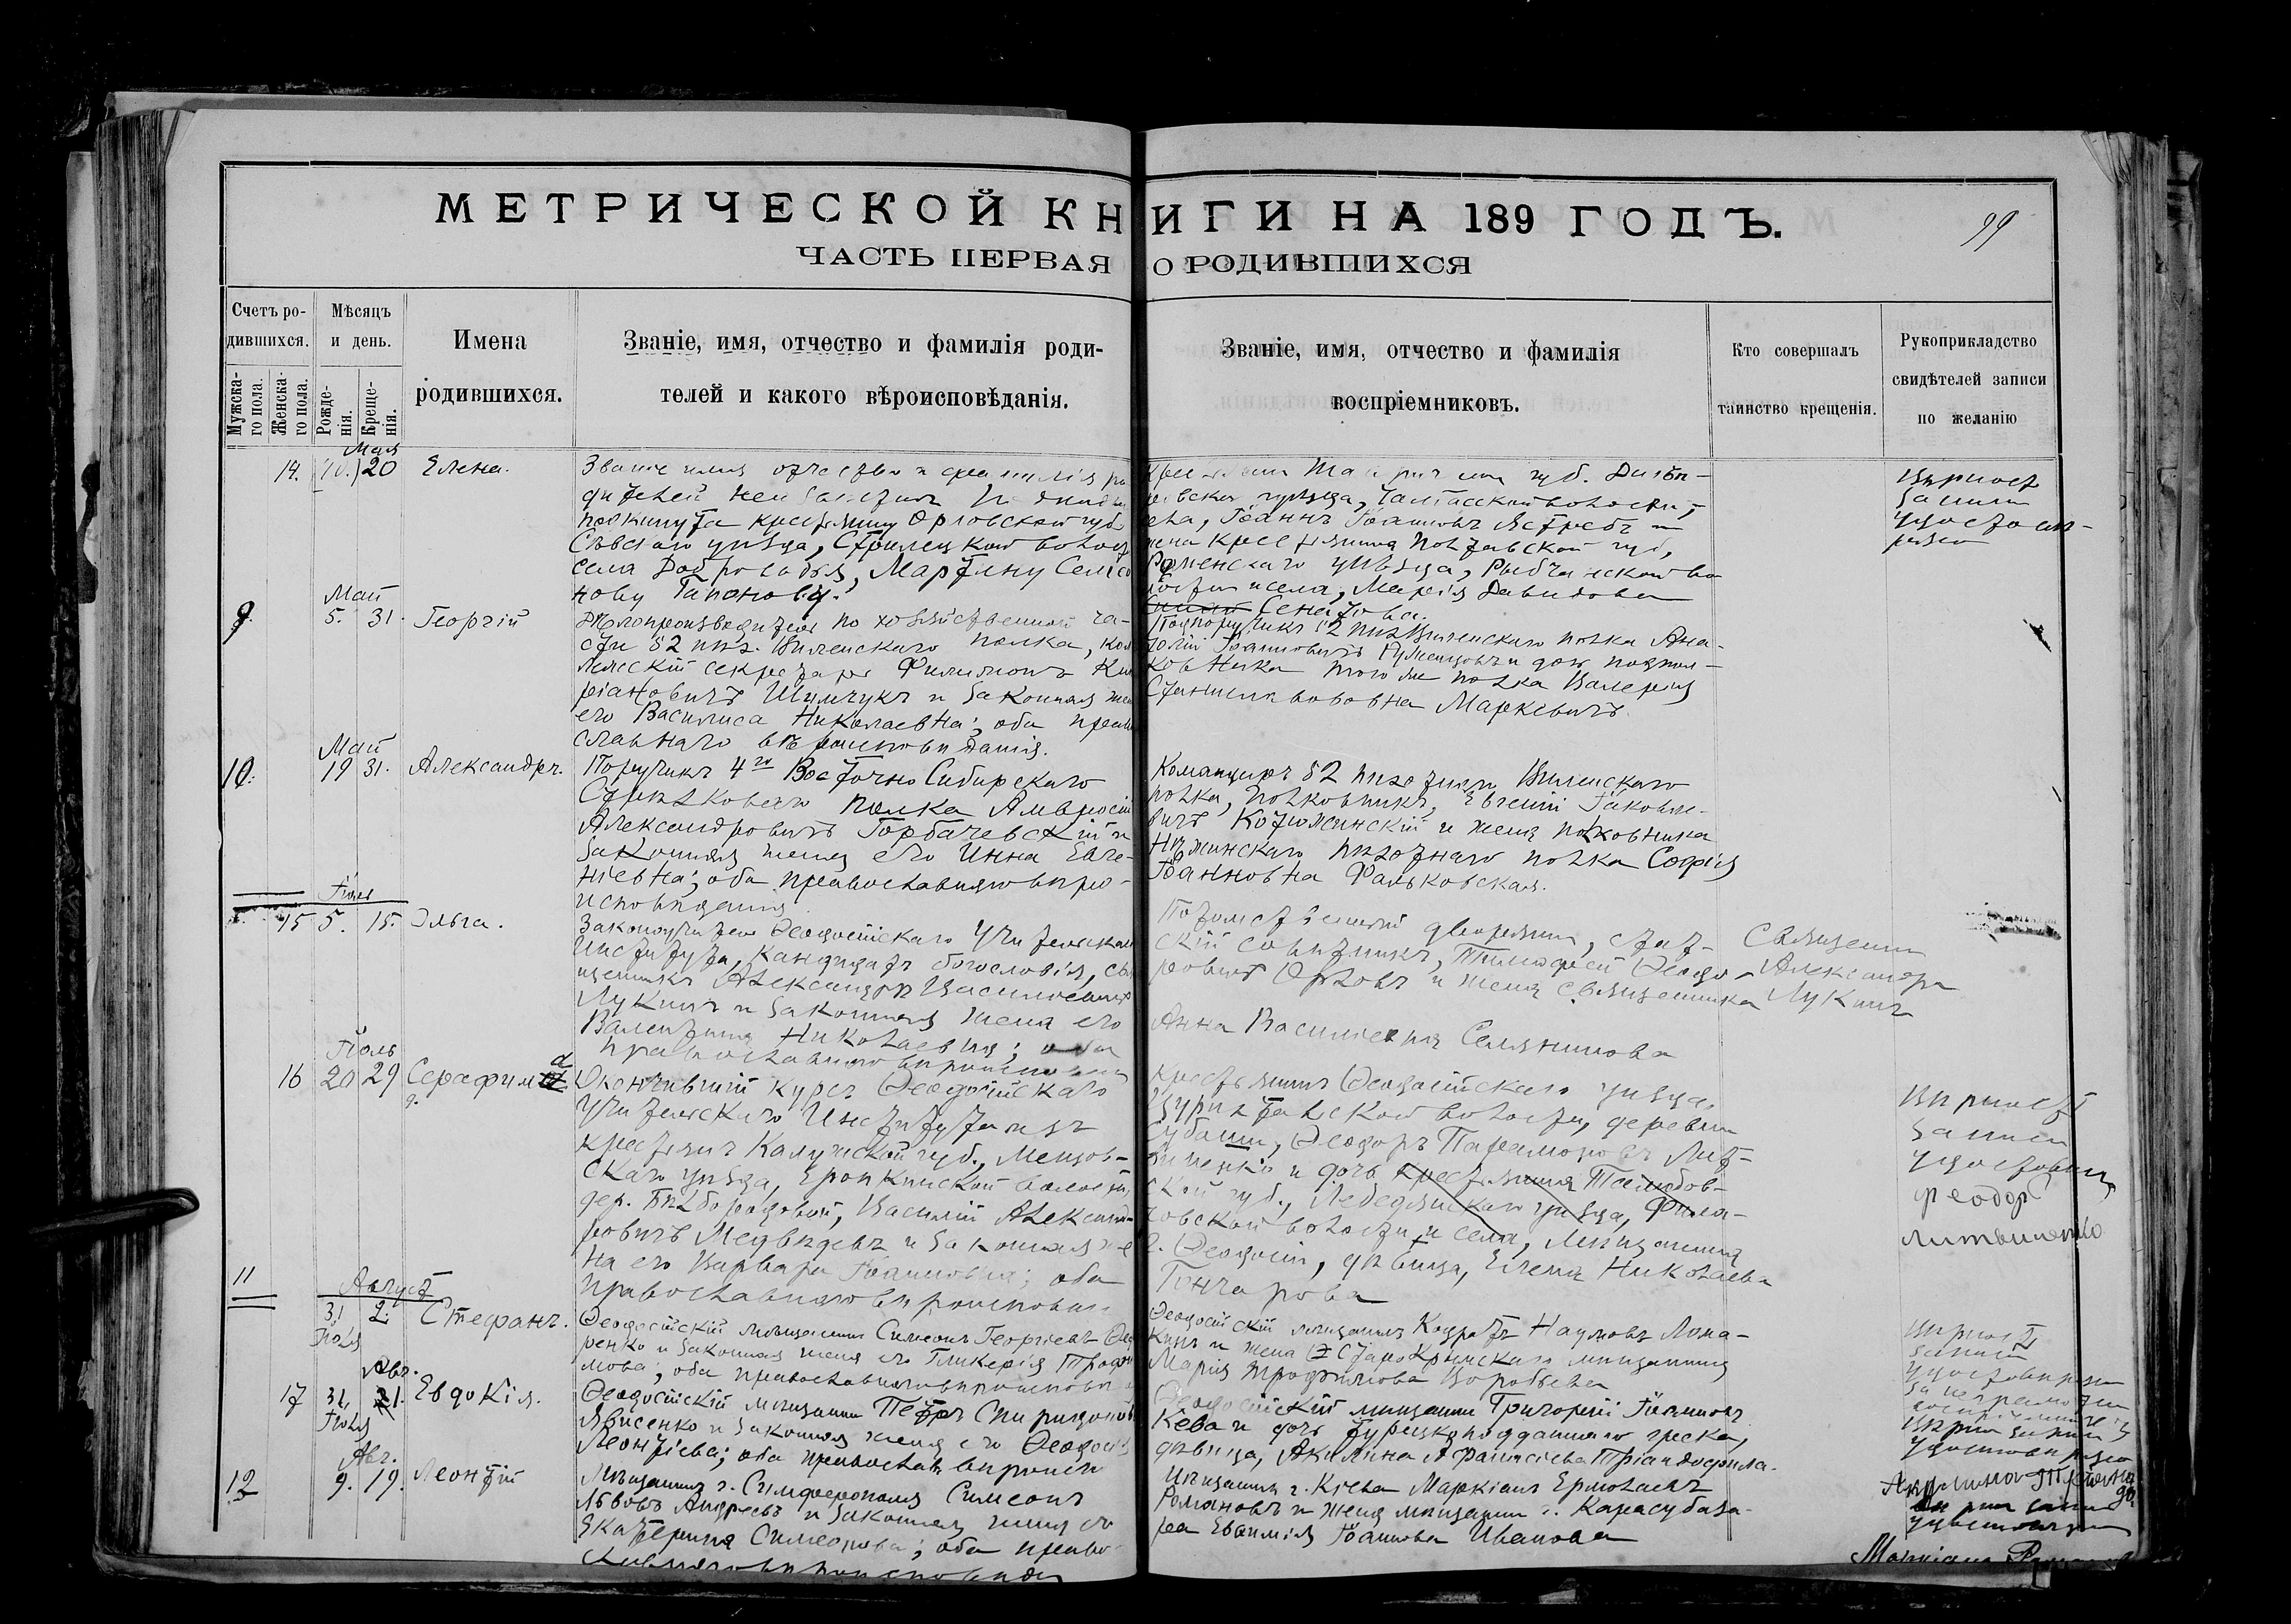 МЕТРИЧЕСКОЙ КНИГИ НА 189 ГОДЪ.
99
ЧАСТЬ ПЕРВАЯ О РОДИВШИХСЯ
Счетъ родившихся.
Мужскаго пола.
Женскаго пола.
Мѣсяцъ и день.
Рожденія.
Крещенія.
Имена
родившихся.
Званіе, имя, отчество и фамилія роди-
телей и какого вѣроисповѣданія.
Званіе, имя, отчество и фамилія
воспріемниковъ.
Кто совершалъ
таинство крещенія.
Рукоприкладство
свидѣтелей записи
по желанію
Мая
14. 20 Елена.
Званіе имя отчество и фамилія ро
дителей
подкинута крестьянину Орловской губ.
Сѣвскаго уѣзда, Стрилецкой волос
села Доброводья, Мартину Семео
нову Гапонову.
губ. Днѣп-
ровскаго уѣзда,
Іоаннъ Іоанновъ Ястребъ и
жена крестьянина Полтавской губ.
Роменскаго уѣзда,
и села, Марія Давидова
Май
9. 5. 31. Георгій
Дѣлопроизводитель по хозяйственной ча-
сти 52 пѣх. Виленскаго полка, кол
лежскій секретарь Филимонъ Кип
ріановичъ Шумчукъ и законная же
его Василиса Николаевна; оба право
славнаго вѣроисповѣданія.
Подпоручикъ 52 пѣх Виленскаго полка Ана-
толій Іоанновичъ и дочь подпол-
ковника того же полка Валерія
Станиславовна Маркевичъ.
Май
10. 19 31. Александръ.
Поручикъ 4го Восточно Сибирскаго
Стрѣлковаго полка Амвросій
Александровичъ Горбачевскій и
законная жена его Инна Евге-
ніевна; оба православнаго вѣро-
исповѣданія
Командиръ 52 пѣхотнаго Виленскаго
полка, полковникъ, Евгеній Іаковле-
вичъ Котюжинскій и жена полковника
Нѣжинскаго пѣхотнаго полка Софія
Іоанновна Фальковская.
Іюль
15 5. 15. Ольга.
Законоучитель Ѳеодосійскаго Учительскаго
Института, кандидатъ богословія, свя
щенникъ Александръ Васильевичъ
Лукинъ и законная жена его
Валентина Николаевна; оба
православнаго вѣроисповѣданія
Потомственный дворянинъ, стат-
скій совѣтникъ, Тимофей Ѳеодо-
ровичъ Орловъ и жена священника
Анна Васильевна Селянинова
Священникъ
Александръ
Лукинъ
Іюль
16 20 29 Серафима
Окончившій курсъ Ѳеодосійскаго
Учительскаго Института изъ
крестьянъ Калужской губ., Мещов-
скаго уѣзда, Еропкинской волости,
дер. Бѣлбородовой, Василій Александ-
ровичъ Медвѣдевъ и законная же
на его Варвара Іоанновна; оба
православнаго вѣроисповѣд
крестьянинъ Ѳеодосійскаго уѣзда,
Цурихтальской волости, деревни
Субаши, Ѳеодоръ Парамоновъ Лит-
виненко и дочь крестьянина Тамбов-
ской губ., Лебедянскаго уѣзда,
волости и села, мѣщанина
г. Ѳеодосіи, дѣвица, Елена Николаева
Гончарова
Вѣрность
записи
удостовѣряю
Феодоръ
Литвиненко
11
Августъ
31 2. Стефанъ.
Іюля
Ѳеодосійскій мѣщанинъ Симеонъ Георгіевъ
ренко и законная жена его Гликерія Трофи
мова; оба православнаго вѣроисповѣд
Ѳеодосійскій мѣщанинъ Кодратъ Наумовъ Лома-
кинъ и жена Старо Крымскаго мѣщанина
Марія Трофимова Воробьева
Вѣрность
записи
удостовѣряю
Авг.
17 31. Евдокія.
Іюля
Ѳеодосійскій мѣщанинъ Петръ Спиридоновъ
Явисенко и законная жена его Ѳеодосія
Леонтіева; оба православн вѣроисп
Ѳеодосійскій мѣщанинъ Григорій Іоанновъ
Кева и дочь турецкоподданнаго грека,
дѣвица, Акилина Афанасіева Тріандофила.
Авг.
12 9. 19. Леонтій
Мѣщанинъ г. Симферополя Симеонъ
Львовъ Андреевъ и законная жена его
Екатерина Симеонова; оба право-
славнаго вѣроисповѣд
Мѣщанинъ г. Кіева Маркіанъ Ермолаевъ
Романовъ и жена мѣщанина г. Карасубаза-
ра Евфимія Іоаннова Иванова